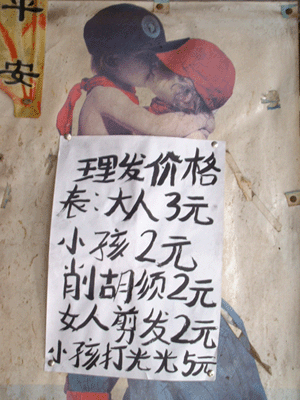 平安
理发价格
表:大人3元
小孩2元
削胡须2元
女人剪发2元
小孩打光光5元